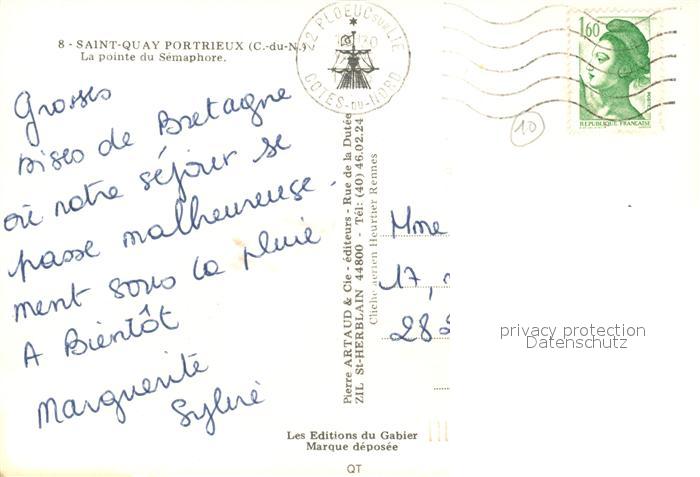 8 - SAINT-QUAY PORTRIEUX (C.-du-N.)
La pointe du Sémaphore.
22 PLOEUC sur LIE
COTES-DU-NORD
1,60
REPUBLIQUE FRANÇAISE
10
Grosses
bises de Bretagne
où notre séjour se
passe malheureuse-
ment sous la pluie
A Bientôt
Marguerite
Sylvie
Pierre ARTAUD & Cie - éditeurs - Rue de la Dutée
ZIL St-HERBLAIN 44800 - Tél: (40) 46.02.24
Cliché aérien Heurtier Rennes
Mme
17,
28
privacy protection
Datenschutz
Les Editions du Gabier
Marque déposée
QT